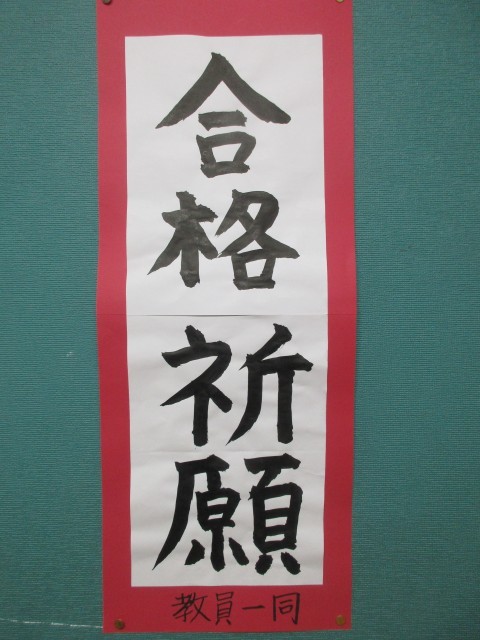 合格祈願
教員一同